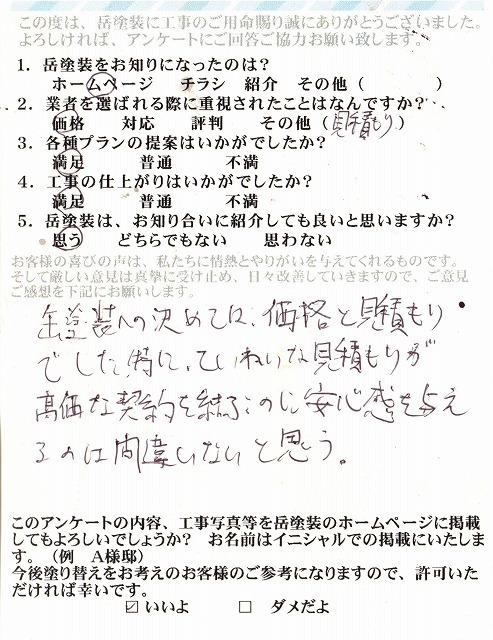 この度は、岳塗装に工事のご用命賜り誠にありがとうございました。
よろしければ、アンケートにご回答ご協力お願い致します。
1．岳塗装をお知りになったのは？
ホームページ　チラシ　紹介　その他（　　　　）
2．業者を選ばれる際に重視されたことはなんですか？
価格　対応　評判　その他（見積もり）
3．各種プランの提案はいかがでしたか？
満足　普通　不満
4．工事の仕上がりはいかがでしたか？
満足　普通　不満
5．岳塗装は、お知り合いに紹介しても良いと思いますか？
思う　どちらでもない　思わない
お客様の喜びの声は、私たちに情熱とやりがいを与えてくれるものです。
そして厳しい意見は真摯に受け止め、日々改善していきますので、ご意見
ご感想を下記にお願いします。
岳塗装への決めては、価格と見積もり
でした。特に、ていねいな見積もりが
高価な契約を結ぶのに安心感を与え
るのは間違いないと思う。
このアンケートの内容、工事写真等を岳塗装のホームページに掲載
してもよろしいでしょうか？　お名前はイニシャルでの掲載にいたしま
す。（例　A様邸）
今後塗り替えをお考えのお客様のご参考になりますので、許可いた
だければ幸いです。
☑ いいよ　□ ダメだよ